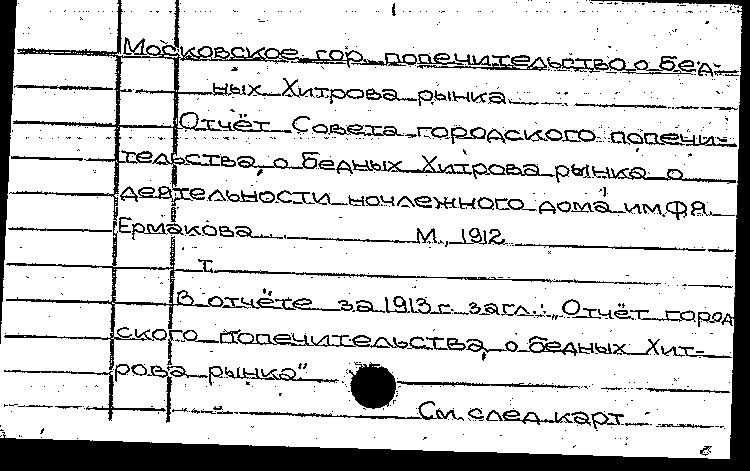 Московское гор. попечительство о бед-
ных Хитрова рынка
Отчёт Совета городского попечи-
тельства о бедных Хитрова рынка о
деятельности ночлежного дома им. Ф.Я.
Ермакова М., 1912
т.
В отчёте за 1913 г. загл.: „Отчёт город
ского попечительства о бедных Хит-
рова рынка"
См. след. карт